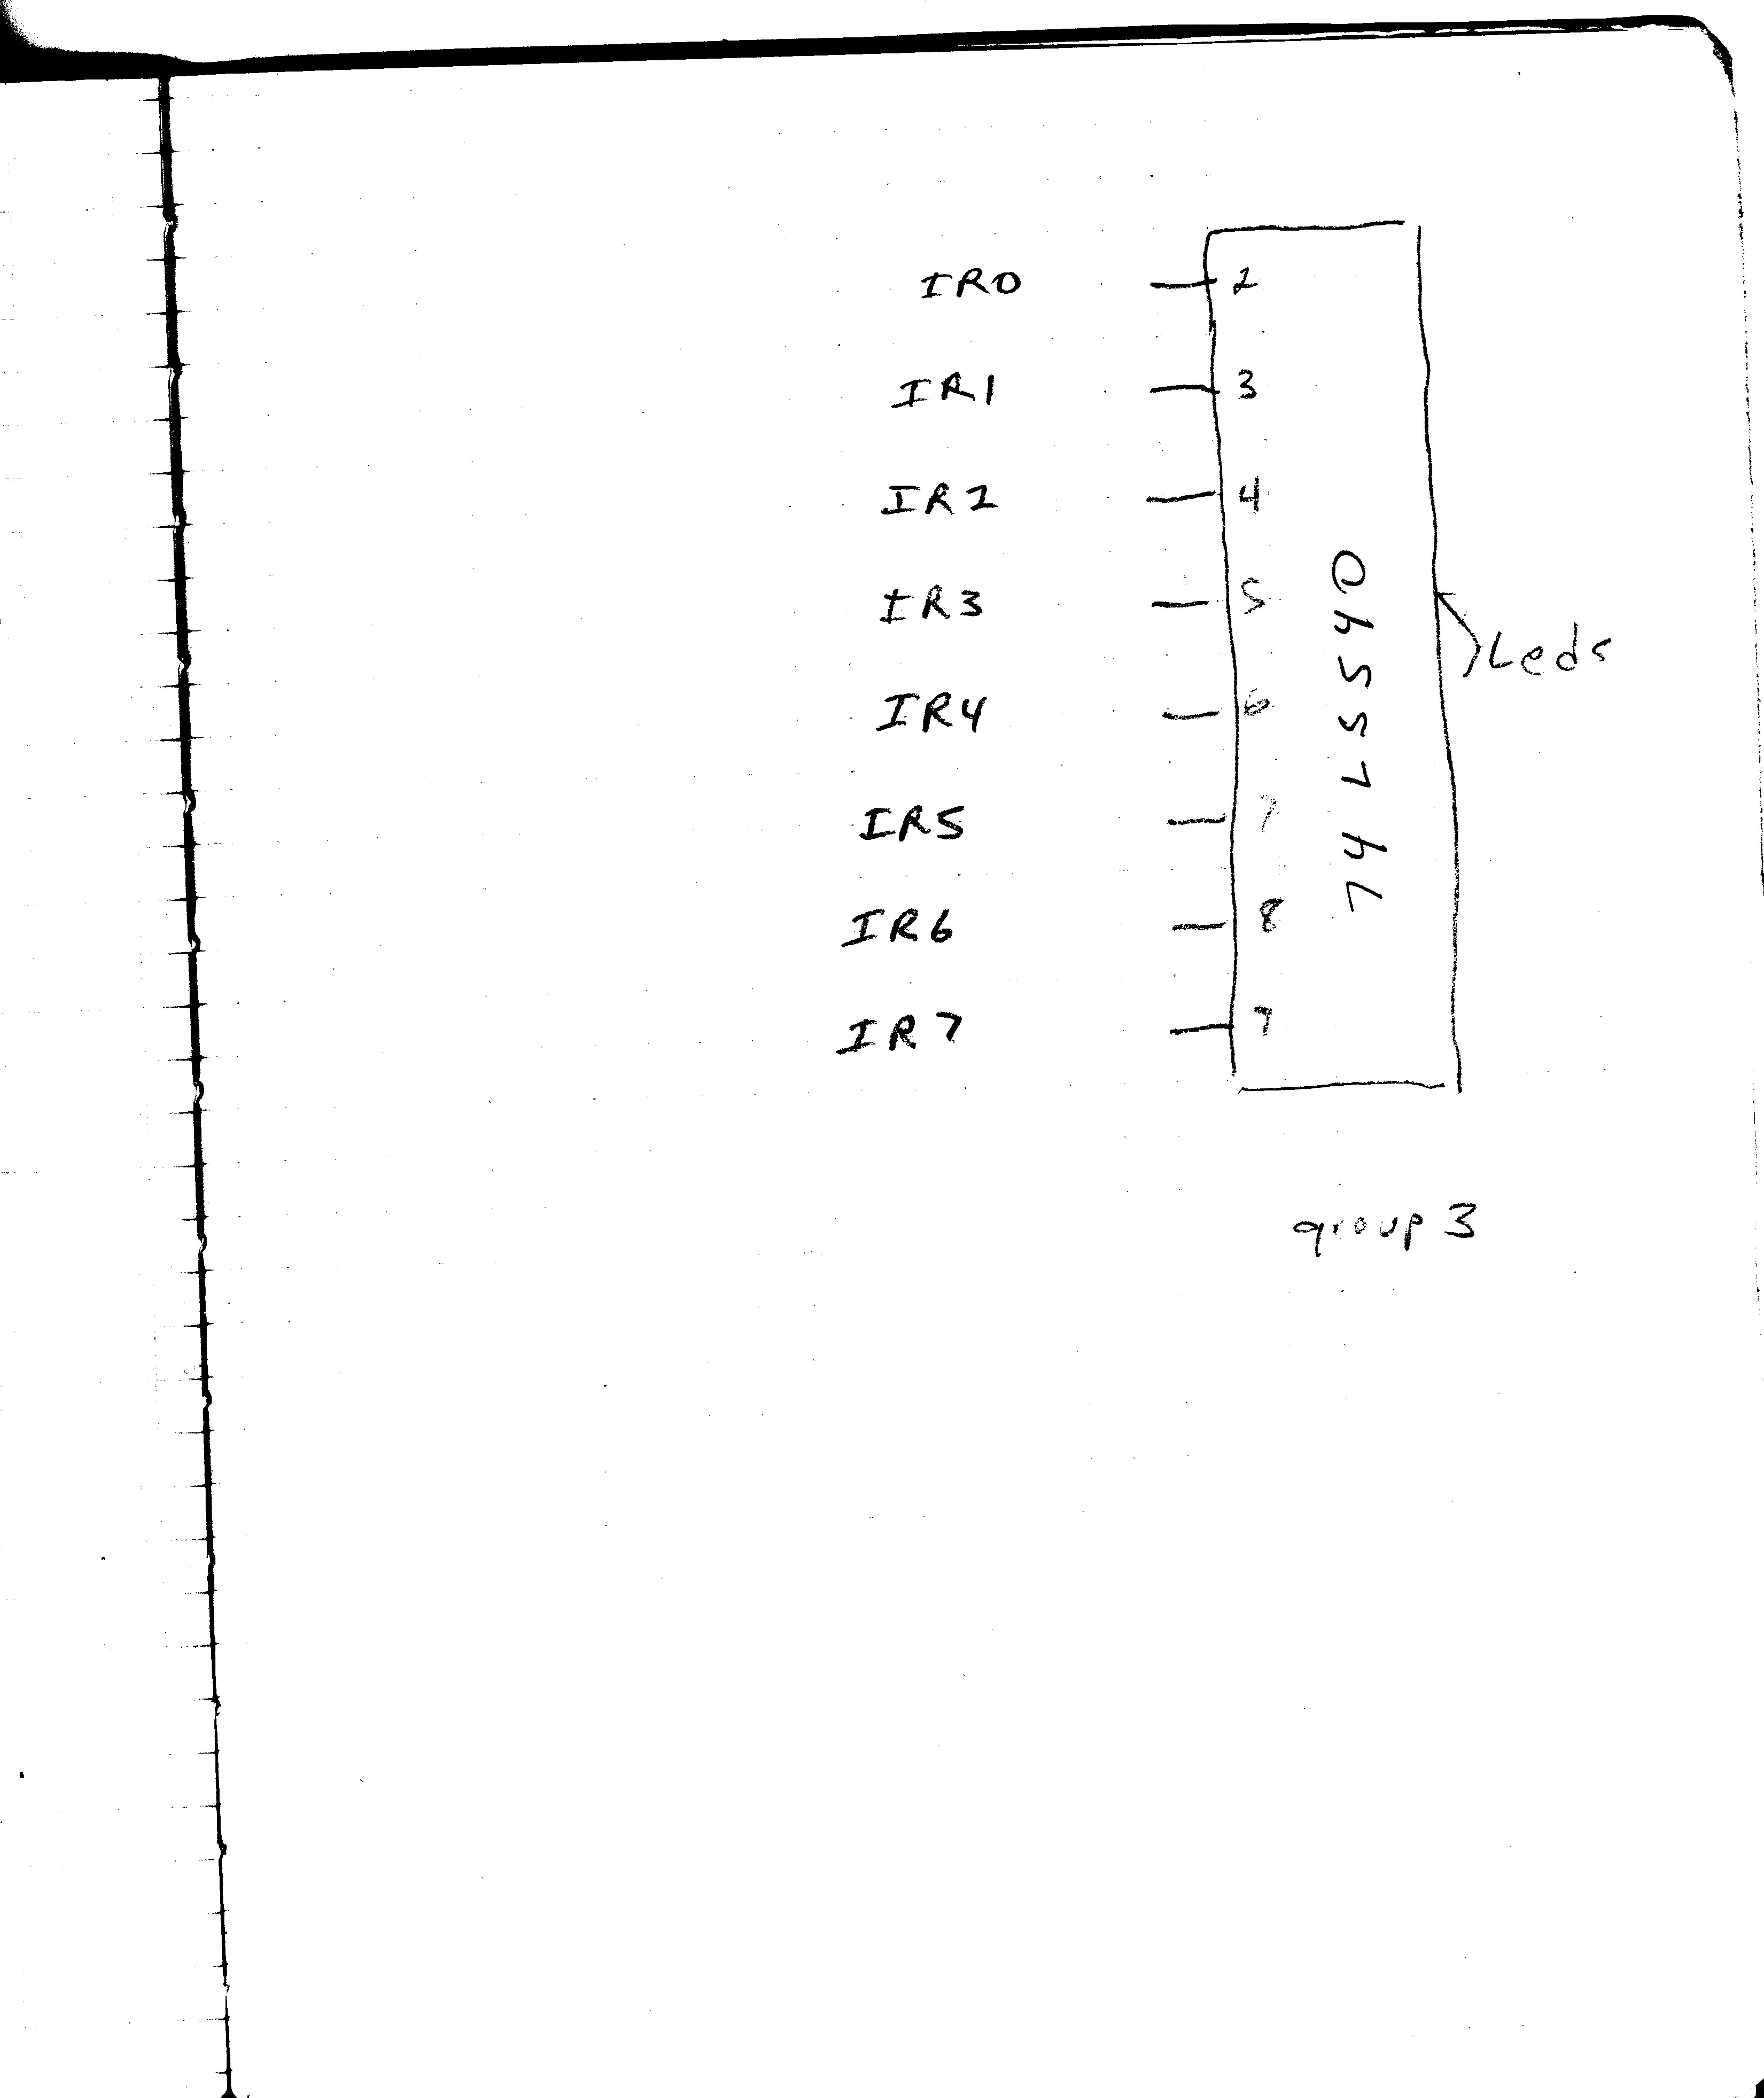 IR0 2
IR1 3
IR2 4
IR3 5
IR4 6
IR5 7
IR6 8
IR7 9
74LS540
Leds
group 3